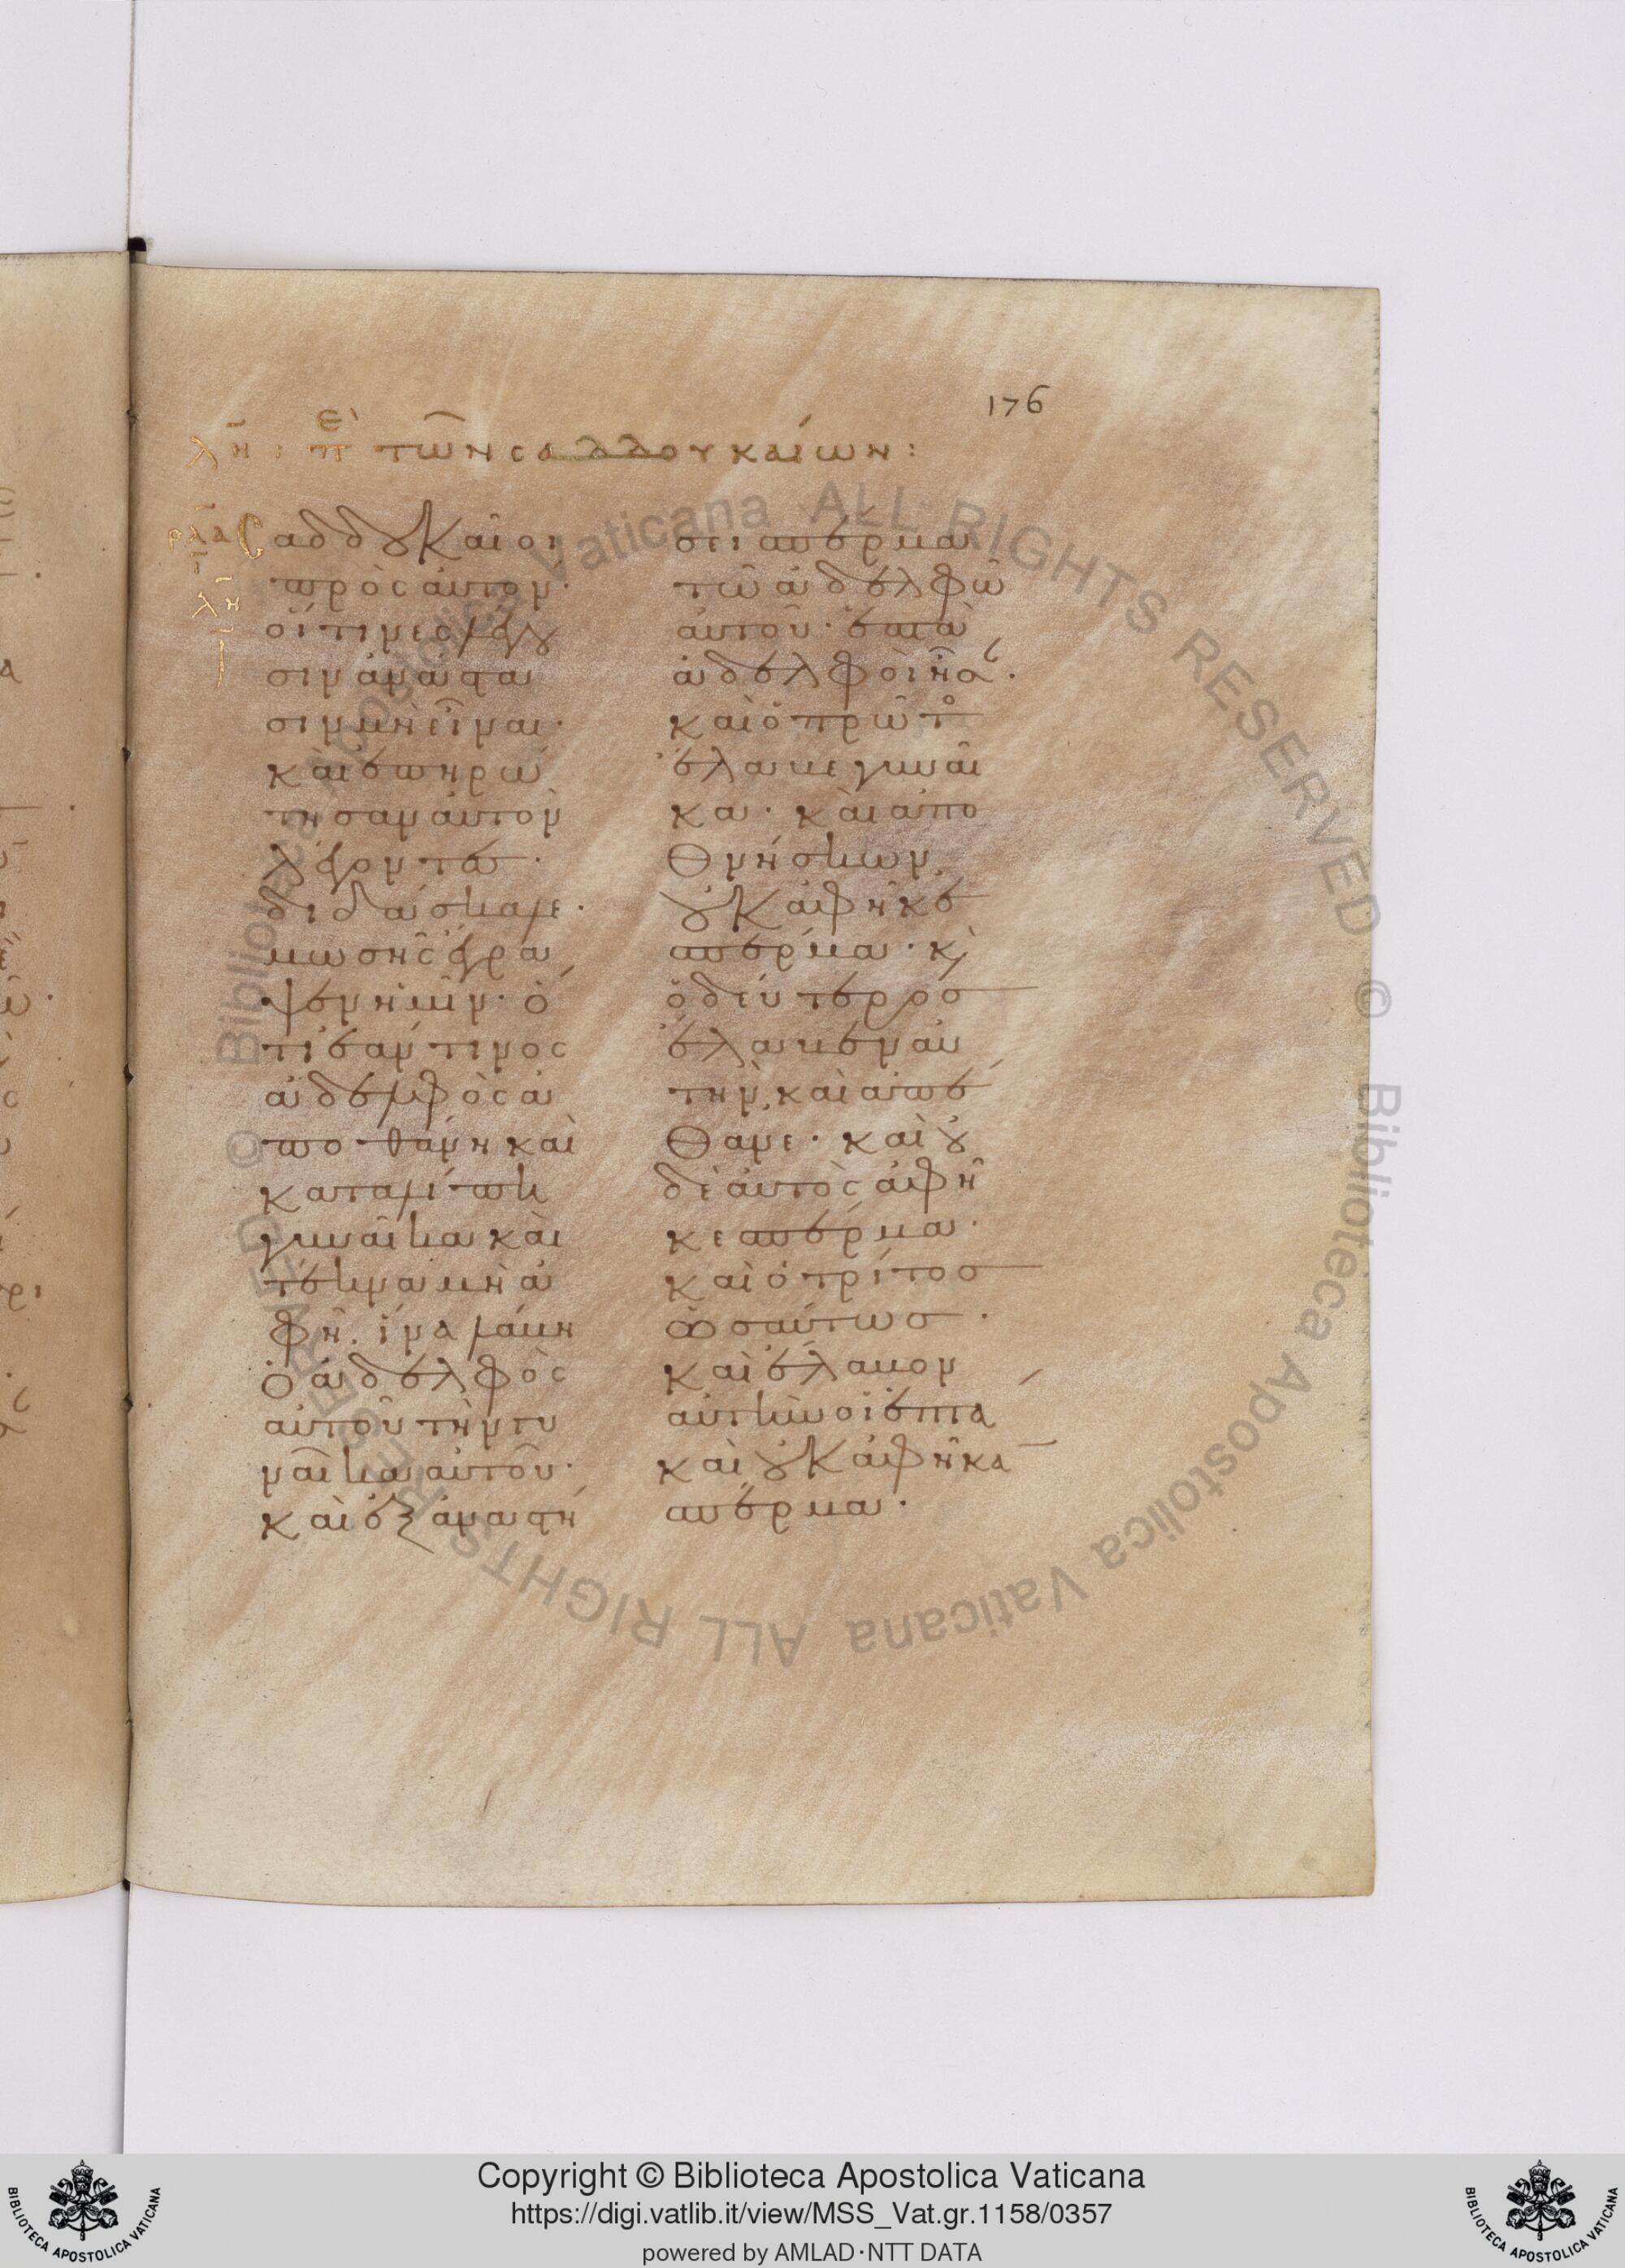 176
λη : πε τῶν σαδδουκαίων :
ρλα
λη
σαδδουκαῖοι
πρὸς αὐτον·
οἵτινες λέγου
σιν ἀνάστα
σιν μὴ εἶναι·
καὶ ἐπηρώ
τησαν αὐτὸν
λέγοντες·
διδάσκαλε·
μωσῆς ἔγρα
ψεν ἡμῖν· ὅ
τι ἐάν τινος
ἀδελφὸς ἀ
ποθάνη καὶ
καταλίπη
γυναῖκα καὶ
τέκνα μὴ ἀ
φῆ· ἵνα λάβη
ὁ ἀδελφὸς
αὐτοῦ τὴν γυ
ναῖκα αὐτοῦ·
καὶ ἐξαναστή
σει σπέρμα
τῶ ἀδελφῶ
αὐτοῦ· ἑπτὰ
ἀδελφοὶ ἦσαν·
καὶ ὁ πρῶτος
ἔλαβε γυναῖ
κα· καὶ ἀπο
θνήσκων
οὐκ ἀφῆκε
σπέρμα· καὶ
ὁ δεύτερος
ἔλαβεν αὐ
τὴν, καὶ ἀπέ
θανε· καὶ οὐ
δὲ αὐτὸς ἀφῆ
κε σπέρμα·
καὶ ὁ τρίτος
ὡσαύτως·
καὶ ἔλαβον
αὐτὴν οἱ ἑπτά
καὶ οὐκ ἀφῆκαν
σπέρμα·
© Biblioteca Apostolica Vaticana ALL RIGHTS RESERVED © Biblioteca Apostolica Vaticana ALL RIGHTS RESERVED
BIBLIOTECA APOSTOLICA VATICANA
Copyright © Biblioteca Apostolica Vaticana
https://digi.vatlib.it/view/MSS_Vat.gr.1158/0357
powered by AMLAD·NTT DATA
BIBLIOTECA APOSTOLICA VATICANA